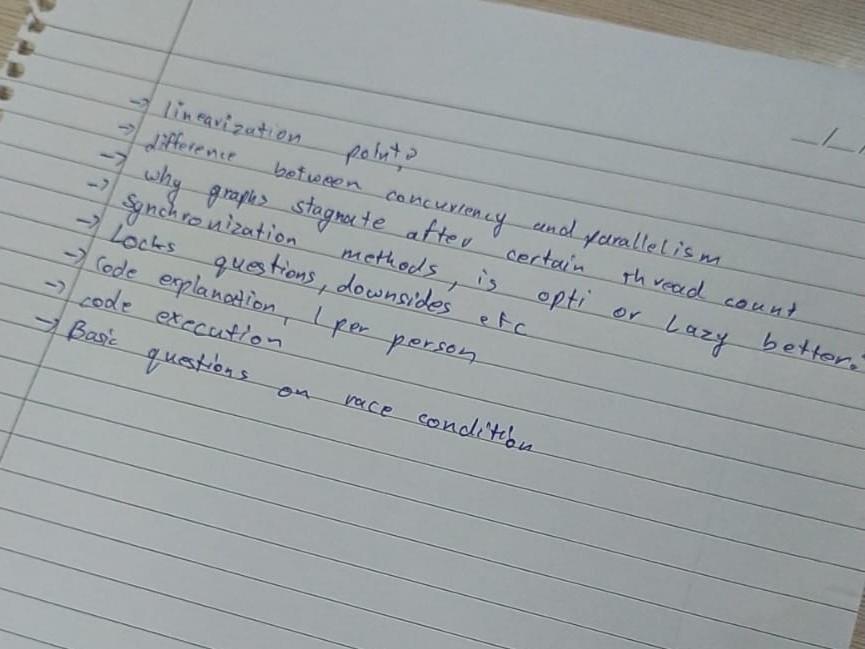 → linearization points
→ difference between concurrency and parallelism
→ why graphs stagnate after certain thread count
→ synchronization methods, is opti or Lazy better.
→ Locks questions, downsides etc
→ Code explanation, 1 per person
→ code execution
→ Basic questions on race condition